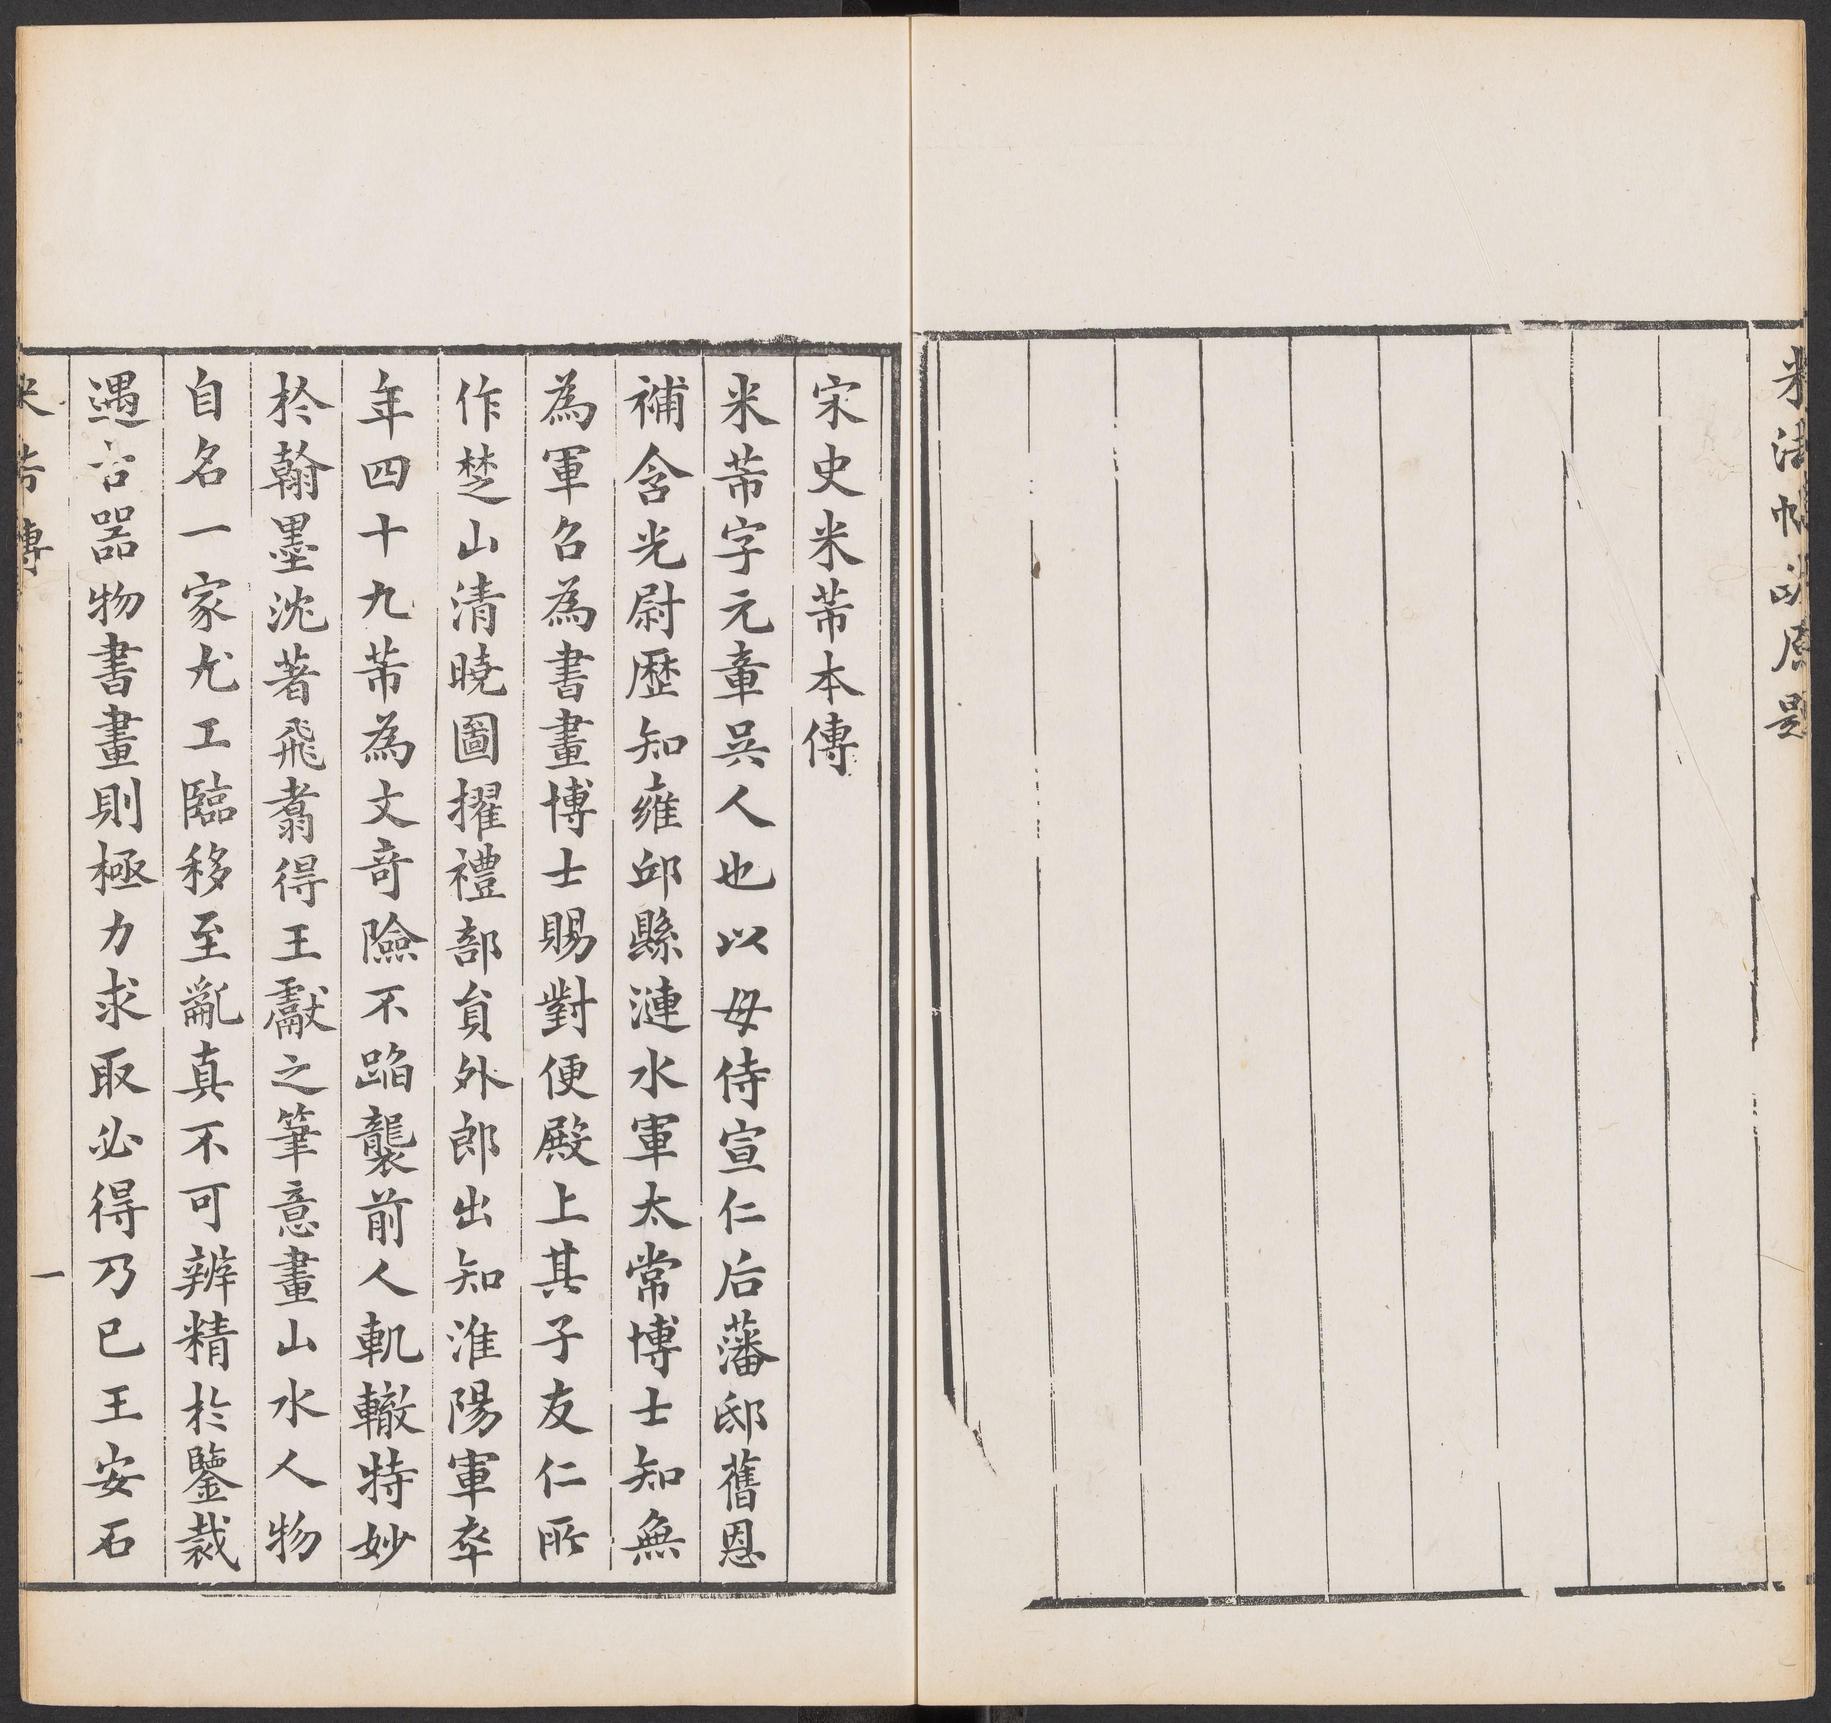 米法帖
原題
宋史米芾本傳
米芾字元章吳人也以母侍宣仁后藩邸舊恩
補含光尉歷知雍邱縣漣水軍太常博士知無
為軍召為書畫博士賜對便殿上其子友仁所
作楚山清曉圖擢禮部員外郎出知淮陽軍卒
年四十九芾為文奇險不蹈襲前人軌轍特妙
於翰墨沈著飛翥得王獻之筆意畫山水人物
自名一家尤工臨移至亂真不可辨精於鑒裁
遇古器物書畫則極力求取必得乃已王安石
米芾傳
一